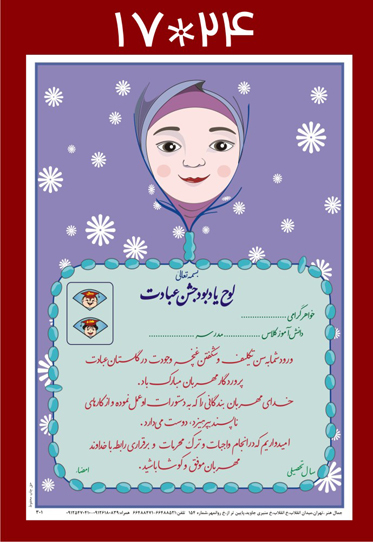 ۱۷*۲۴
بسمه تعالی
لوح یادبود جشن عبادت
خواهر گرامی ......................
دانش آموز کلاس ................ مدرسه ......................
ورود شما به سن تکلیف و شکفتن غنچه وجودت در گلستان عبادت
پروردگار مهربان مبارک باد.
خدای مهربان بندگانی را که به دستورات او عمل نموده و از کارهای
ناپسند بپرهیزد، دوست می دارد.
امیدواریم که در انجام واجبات و ترک محرمات و برقراری رابطه با خداوند
مهربان موفق و کوشا باشید.
سال تحصیلی
امضاء
۳۰۱